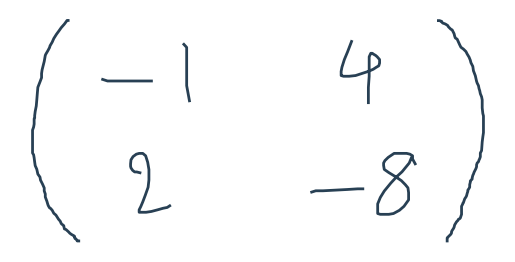 -1 4
2 -8